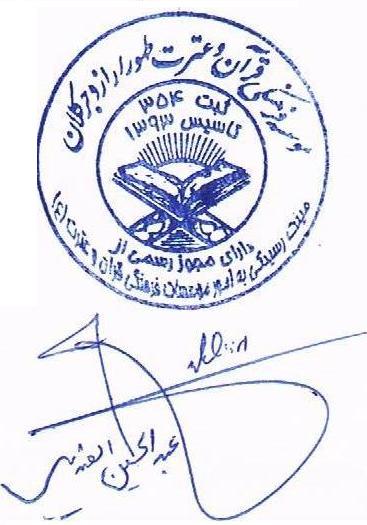 موسسه فرهنگی قرآن و عترت طور اراز و جرگلان
ثبت ۳۵۴
تاسیس ۱۳۹۳
دارای مجوز رسمی از
هیئت رسیدگی به امور موسسات فرهنگی قرآن و عترت (ع)
عبدالحسین